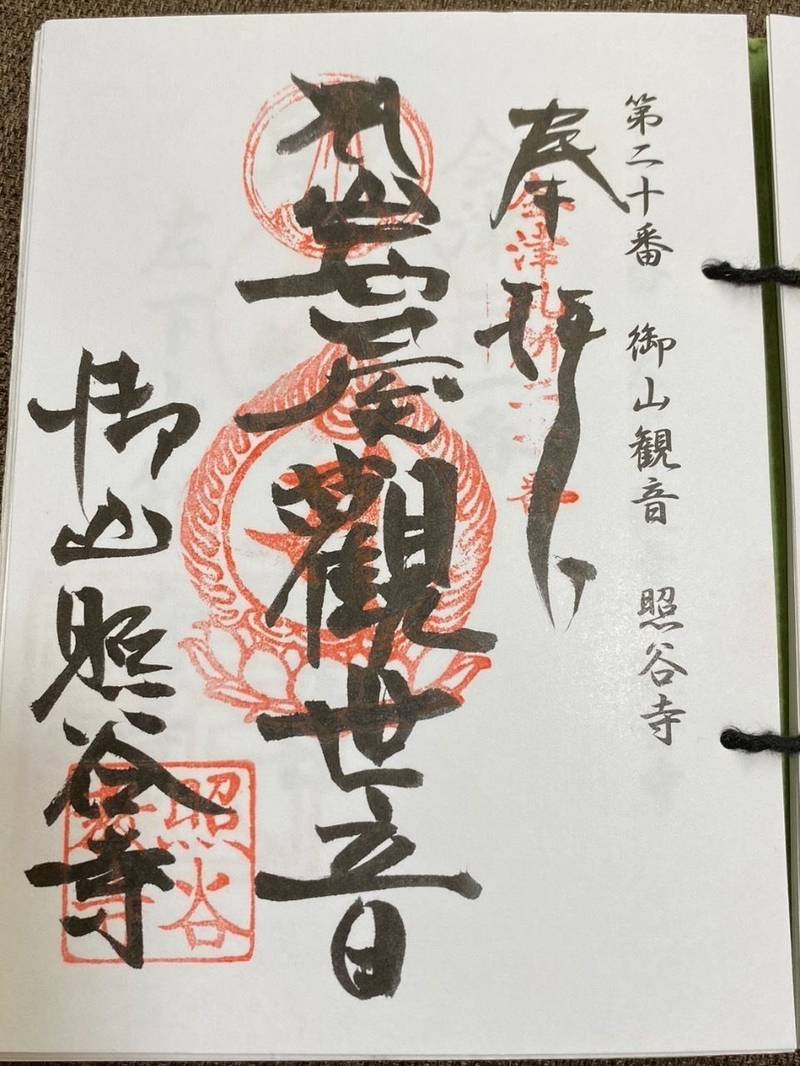 第二十番 御山観音 照谷寺
奉拝
会津札所二十番
觀世音
御山照谷寺
照谷
寺